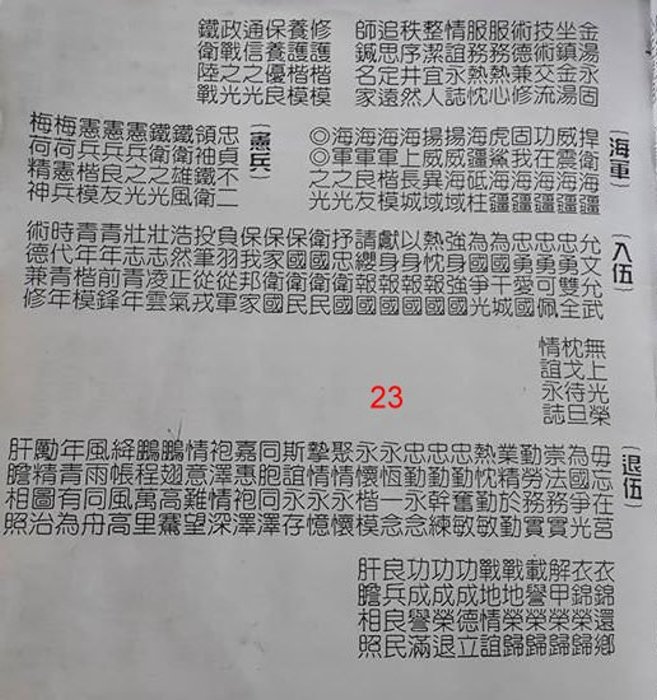 金湯永固
坐鎮金湯
技術交流
術德兼修
服務熱心
服務熱忱
情誼永誌
整潔宜人
秩序井然
追思定遠
師鍼名家
修護楷模
養護楷模
保養優良
通信之光
政戰之光
鐵衛陸戰
(海軍)
捍衛海疆
威雲海疆
功在海疆
固我海疆
虎鯊海疆
海疆砥柱
揚威海域
揚威異域
海上長城
海軍楷模
海軍良友
海軍之光
◎◎之光
(憲兵)
忠貞不二
領袖鐵衛
鐵衛雄風
鐵衛之光
憲兵之光
憲兵良友
憲兵楷模
梅荷憲兵
梅荷精神
(入伍)
允文允武
忠勇雙全
忠勇可佩
忠勇愛國
為國干城
為國爭光
強身強國
熱忱報國
以身報國
獻身報國
請纓報國
抒忠衛國
衛國衛民
保國衛民
保國衛國
保我邦家
負羽從軍
投筆從戎
浩然正氣
壯志凌雲
壯志青年
青年前鋒
青年楷模
時代青年
術德兼修
無上光榮
枕戈待旦
情誼永誌
23
(退伍)
毋忘在莒
為國爭光
崇法務實
勤勞務實
業精於勤
熱忱勤敏
忠勤奮敏
忠勤幹練
忠勤永念
永恆一念
永懷楷模
聚情永懷
摯情永憶
斯誼永存
同胞同澤
嘉惠袍澤
袍澤情深
情意難望
鵬翅高騫
鵬程萬里
絳帳風高
風雨同舟
年青有為
勵精圖治
肝膽相照
衣錦還鄉
衣錦榮歸
解甲榮歸
載譽榮歸
戰地榮歸
戰地情誼
功成德立
功成榮退
功成譽滿
良兵良民
肝膽相照